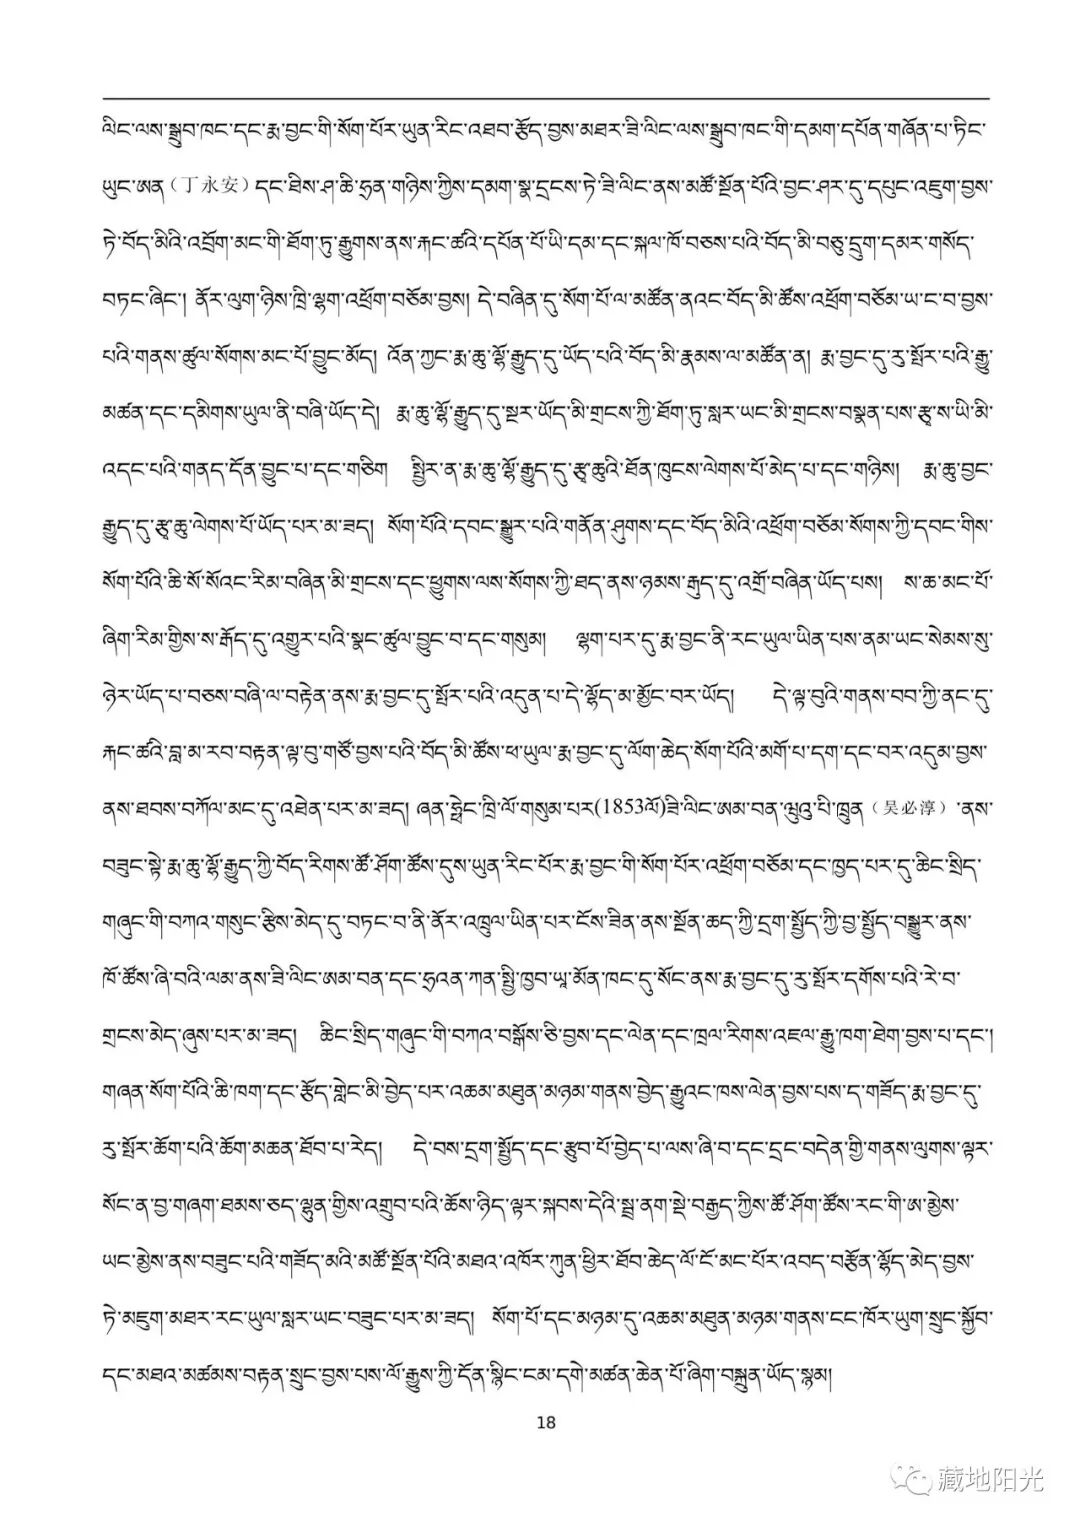 ལིང་ལས་སྒྲུབ་ཁང་དང་རྨ་བྱང་གི་སོག་པོར་ཡུན་རིང་འཐབ་རྩོད་བྱས་མཐར་ཟི་ལིང་ལས་སྒྲུབ་ཁང་གི་དམག་དཔོན་གཞོན་པ་ཏིང་
ཡུང་ཨན（丁永安）དང་ཐིས་ཤ་ཆི་ཧྲན་གཉིས་ཀྱིས་དམག་སྣ་དྲངས་ཏེ་ཟི་ལིང་ནས་མཚོ་སྔོན་པོའི་བྱང་ཤར་དུ་དཔུང་འཇུག་བྱས་
ཏེ་བོད་མིའི་འབྲོག་མང་གི་ཐོག་ཏུ་རྒྱུགས་ནས་རྐང་ཚའི་དཔོན་པོ་ཡི་དམ་དང་སྐལ་ཁོ་བཅས་པའི་བོད་མི་བཅུ་དྲུག་དམར་གསོད་
བཏང་ཞིང་། ནོར་ལུག་ཉིས་ཁྲི་ལྷག་འཕྲོག་བཅོམ་བྱས། དེ་བཞིན་དུ་སོག་པོ་ལ་མཚོན་ནའང་བོད་མི་ཚོས་འཕྲོག་བཅོམ་ཡ་ང་བ་བྱས་
པའི་གནས་ཚུལ་སོགས་མང་པོ་བྱུང་མོད། འོན་ཀྱང་རྨ་ཆུ་ལྷོ་རྒྱུད་དུ་ཡོད་པའི་བོད་མི་རྣམས་ལ་མཚོན་ན། རྨ་བྱང་དུ་རུ་སྤོར་པའི་རྒྱུ་
མཚན་དང་དམིགས་ཡུལ་ནི་བཞི་ཡོད་དེ། རྨ་ཆུ་ལྷོ་རྒྱུད་དུ་སྔར་ཡོད་མི་གྲངས་ཀྱི་ཐོག་ཏུ་སླར་ཡང་མི་གྲངས་བསྣན་པས་རྩྭ་ས་ཡི་མི་
འདང་པའི་གནད་དོན་བྱུང་པ་དང་གཅིག སྤྱིར་ན་རྨ་ཆུ་ལྷོ་རྒྱུད་དུ་རྩྭ་ཆུའི་ཐོན་ཁུངས་ལེགས་པོ་མེད་པ་དང་གཉིས། རྨ་ཆུ་བྱང་
རྒྱུད་དུ་རྩྭ་ཆུ་ལེགས་པོ་ཡོད་པར་མ་ཟད། སོག་པོའི་དབང་སྒྱུར་པའི་གནོན་ཤུགས་དང་བོད་མིའི་འཕྲོག་བཅོམ་སོགས་ཀྱི་དབང་གིས་
སོག་པོའི་ཆི་སོ་སོའང་རིམ་བཞིན་མི་གྲངས་དང་ཕྱུགས་ལས་སོགས་ཀྱི་ཐད་ནས་ཉམས་རྒུད་དུ་འགྲོ་བཞིན་ཡོད་པས། ས་ཆ་མང་པོ་
ཞིག་རིམ་གྱིས་ས་རྒོད་དུ་འགྱུར་པའི་སྣང་ཚུལ་བྱུང་བ་དང་གསུམ། ལྷག་པར་དུ་རྨ་བྱང་ནི་རང་ཡུལ་ཡིན་པས་ནམ་ཡང་སེམས་སུ་
ཉེར་ཡོད་པ་བཅས་བཞི་ལ་བརྟེན་ནས་རྨ་བྱང་དུ་སྤོར་པའི་འདུན་པ་དེ་ལྷོད་མ་མྱོང་བར་ཡོད། དེ་ལྟ་བུའི་གནས་བབ་ཀྱི་ནང་དུ་
རྐང་ཚའི་བླ་མ་རབ་བརྟན་ལྟ་བུ་གཙོ་བྱས་པའི་བོད་མི་ཚོས་ཕ་ཡུལ་རྨ་བྱང་དུ་ལོག་ཆེད་སོག་པོའི་མགོ་པ་དག་དང་བར་འདུམ་བྱས་
ནས་ཐབས་བཀོལ་མང་དུ་འཐེན་པར་མ་ཟད། ཞན་ཧྥེང་ཁྲི་ལོ་གསུམ་པར(1853ལོ)ཟི་ལིང་ཨམ་བན་ཝུའུ་པི་ཁྲུན（吴必淳）་ནས་
བཟུང་སྟེ་རྨ་ཆུ་ལྷོ་རྒྱུད་ཀྱི་བོད་རིགས་ཚོ་ཤོག་ཚོས་དུས་ཡུན་རིང་པོར་རྨ་བྱང་གི་སོག་པོར་འཕྲོག་བཅོམ་དང་ཁྱད་པར་དུ་ཆིང་སྲིད་
གཞུང་གི་བཀའ་གསུང་རྩིས་མེད་དུ་བཏང་བ་ནི་ནོར་འཁྲུལ་ཡིན་པར་ངོས་ཟིན་ནས་སྔོན་ཆད་ཀྱི་དྲག་སྤྱོད་ཀྱི་བྱ་སྤྱོད་བསྒྱུར་ནས་
ཁོ་ཚོས་ཞི་བའི་ལམ་ནས་ཟི་ལིང་ཨམ་བན་དང་ཧྲའན་ཀན་སྤྱི་ཁྱབ་ཡཱ་མོན་ཁང་དུ་སོང་ནས་རྨ་བྱང་དུ་རུ་སྤོར་དགོས་པའི་རེ་བ་
གྲངས་མེད་ཞུས་པར་མ་ཟད། ཆིང་སྲིད་གཞུང་གི་བཀའ་བསྐོས་ཅི་བྱས་དང་ལེན་དང་ཁྲལ་རིགས་འཇལ་རྒྱུ་ཁག་ཐེག་བྱས་པ་དང་།
གཞན་སོག་པོའི་ཆི་ཁག་དང་རྩོད་གླེང་མི་བྱེད་པར་འཆམ་མཐུན་མཉམ་གནས་བྱེད་རྒྱུའང་ཁས་ལེན་བྱས་པས་ད་གཟོད་རྨ་བྱང་དུ་
རུ་སྤོར་ཆོག་པའི་ཆོག་མཆན་ཐོབ་པ་རེད། དེ་བས་དྲག་སྤྱོད་དང་རྩུབ་པོ་བྱེད་པ་ལས་ཞི་བ་དང་དྲང་བདེན་གྱི་གནས་ལུགས་ལྟར་
སོང་ན་བྱ་གཞག་ཐམས་ཅད་ལྷུན་གྱིས་འགྲུབ་པའི་ཆོས་ཉིད་ལྟར་སྐབས་དེའི་སྦྲ་ནག་སྡེ་བརྒྱད་ཀྱིས་ཚོ་ཤོག་ཚོས་རང་གི་ཨ་མྱེས་
ཡང་མྱེས་ནས་བཟུང་པའི་གཟོད་མའི་མཚོ་སྔོན་པོའི་མཐའ་འཁོར་ཀུན་ཕྱིར་ཐོབ་ཆེད་ལོ་ངོ་མང་པོར་འབད་བརྩོན་ལྷོད་མེད་བྱས་
ཏེ་མཇུག་མཐར་རང་ཡུལ་སླར་ཡང་བཟུང་པར་མ་ཟད། སོག་པོ་དང་མཉམ་དུ་འཆམ་མཐུན་མཉམ་གནས་ངང་ཁོར་ཡུག་སྲུང་སྐྱོབ་
དང་མཐའ་མཚམས་བརྟན་སྲུང་བྱས་པས་ལོ་རྒྱུས་ཀྱི་དོན་སྙིང་ངམ་དགེ་མཚན་ཆེན་པོ་ཞིག་བསྐྲུན་ཡོད་སྙམ།
18
藏地阳光